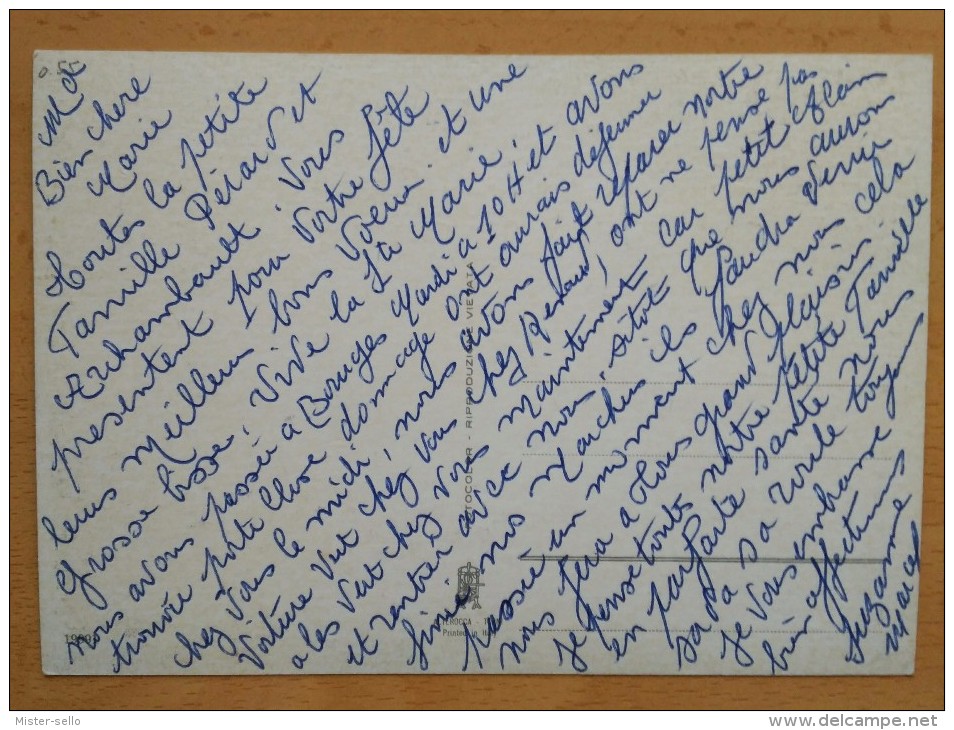 Bien chere
Marie
Toutes la petite
Famille Pérard et
Archambault Vous
presentent pour Votre fête
leurs Meilleurs bons Voeux et une
Grosse bise. Vive la Ste Marie,
nous avons passée a Bourges Mardi a 10H et avons
trouvée porte close domage ont aurais dejeuner
chez Vous le midi, nous avons fait reparer notre
Voiture chez Renaud, ont ne pense pas
a les Voir chez Vous maintenant car petit Alain
et rentrer avec nous, sitot que nous aurons
finie nos Marches ils faudra Venir
passée un moment chez nous cela
nous fera a tous grand plaisir
je pense toute notre petite Famille
en parfaite santé nous
sa va sa roule toujours
je Vous embrasse
bien affectueus
Suzanne
Marcel
ROTOCOLOR - RIPRODUZIONE VIETATA
Printed in Italy
Mister-sello
www.delcampe.net